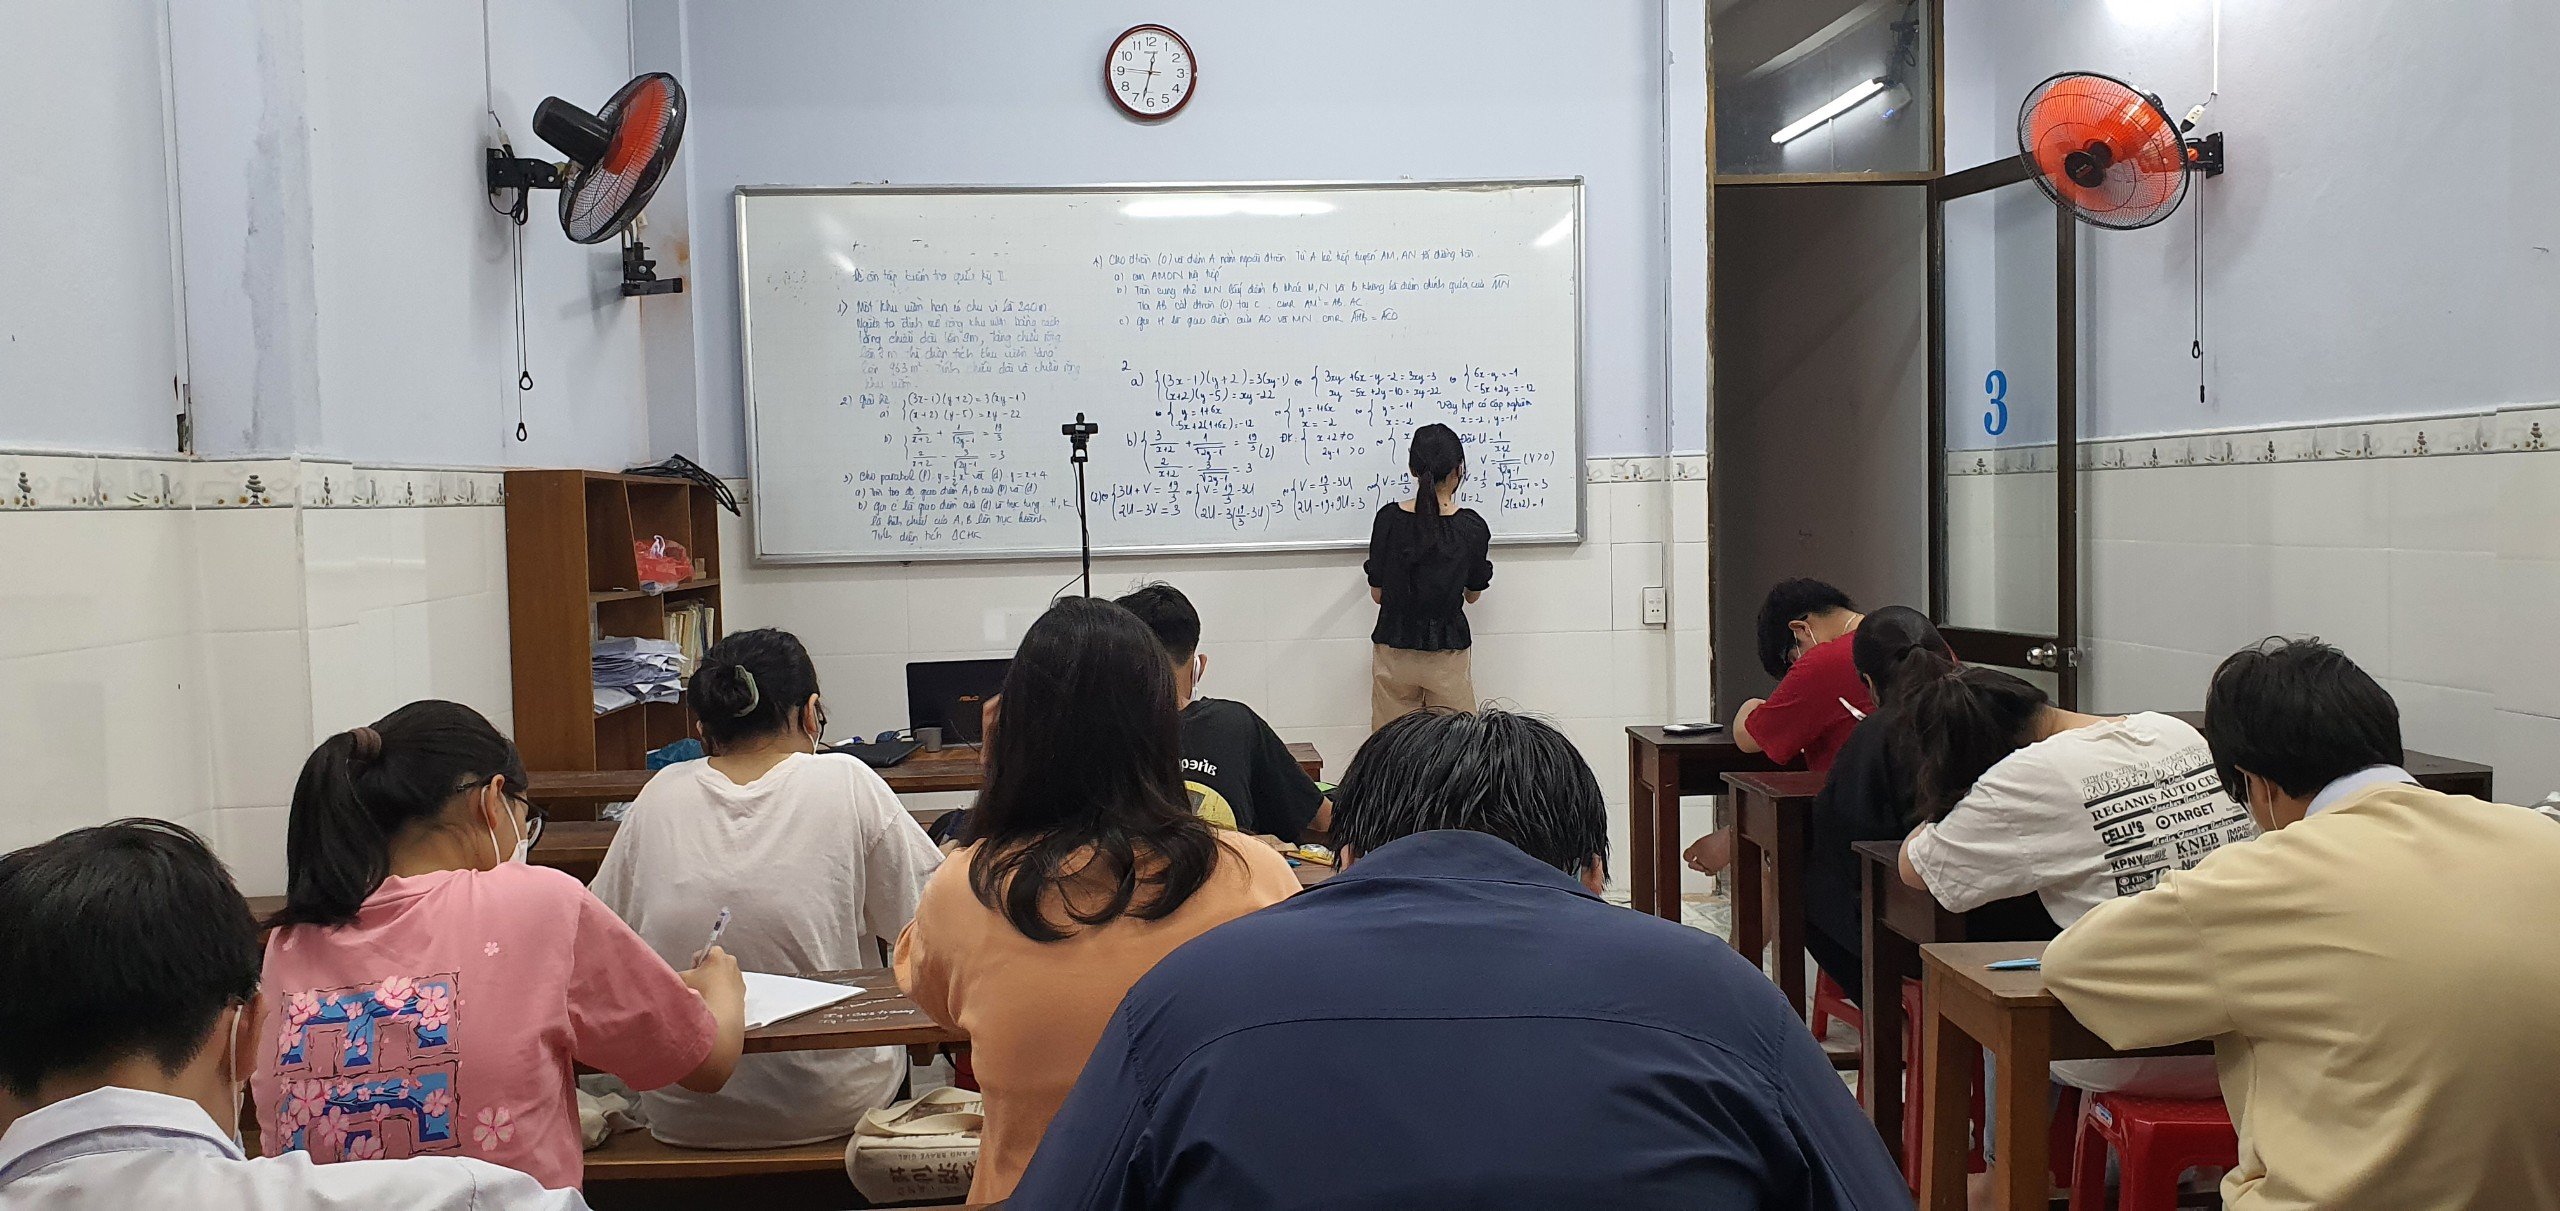 Đề ôn tập kiểm tra giữa kỳ II
1) Một khu vườn hcn có chu vi là 240m
Người ta định mở rộng khu vườn bằng cách
tăng chiều dài lên 9m, tăng chiều rộng
lên 7m thì diện tích khu vườn tăng
lên 963m². Tính chiều dài và chiều rộng
khu vườn.
2) Giải hệ
a) { (3x-1)(y+2)=3(xy-1)
(x+2)(y-5)=xy-22
b) { 3/(x+2) + 1/√(2y-1) = 19/3
2/(x+2) - 3/√(2y-1) = 3
3) Cho parabol (P): y = ½x² và (d) y = x+4
a) Tìm tọa độ giao điểm A, B của (P) và (d)
b) Gọi C là giao điểm của (d) và trục tung. H, K
là hình chiếu của A, B lên trục hoành
Tính diện tích ΔCHK
4) Cho đtròn (O) và điểm A nằm ngoài đtròn. Từ A kẻ tiếp tuyến AM, AN tới đường tròn.
a) cm AMON nội tiếp
b) Trên cung nhỏ MN lấy điểm B khác M, N và B không là điểm chính giữa của MN
Tia AB cắt đtròn (O) tại C. cmR AM² = AB. AC
c) Gọi H là giao điểm của AO và MN. cmR AHB = ACO
2
a) { (3x-1)(y+2)=3(xy-1) ⇔ { 3xy+6x-y-2=3xy-3 ⇔ { 6x-y=-1
(x+2)(y-5)=xy-22 xy-5x+2y-10=xy-22 -5x+2y=-12
⇔ { y=1+6x ⇔ { y=1+6x ⇔ { y=-11 Vậy hpt có cặp nghiệm
-5x+2(1+6x)=-12 x=-2 x=-2 x=-2, y=-11
b) { 3/(x+2) + 1/√(2y-1) = 19/3 (2) ĐK: { x+2≠0 ⇔ { x Đặt U = 1/(x+2)
2/(x+2) - 3/√(2y-1) = 3 2y-1>0 V = 1/√(2y-1) (V>0)
(2)⇔ { 3U+V=19/3 ⇔ { V=19/3-3U ⇔ { V=19/3-3U ⇔ { V=19/3 V=1/3 { √(2y-1)=3
2U-3V=3 2U-3(19/3-3U)=3 2U-19+9U=3 U=2 2(x+2)=1
12
11
1
10
2
9
3
8
4
7
5
6
3
ASUS
RUBBER DUCK RA
REGANIS AUTO CEN
CELLI'S
TARGET
KPNY
KNEB
CBS